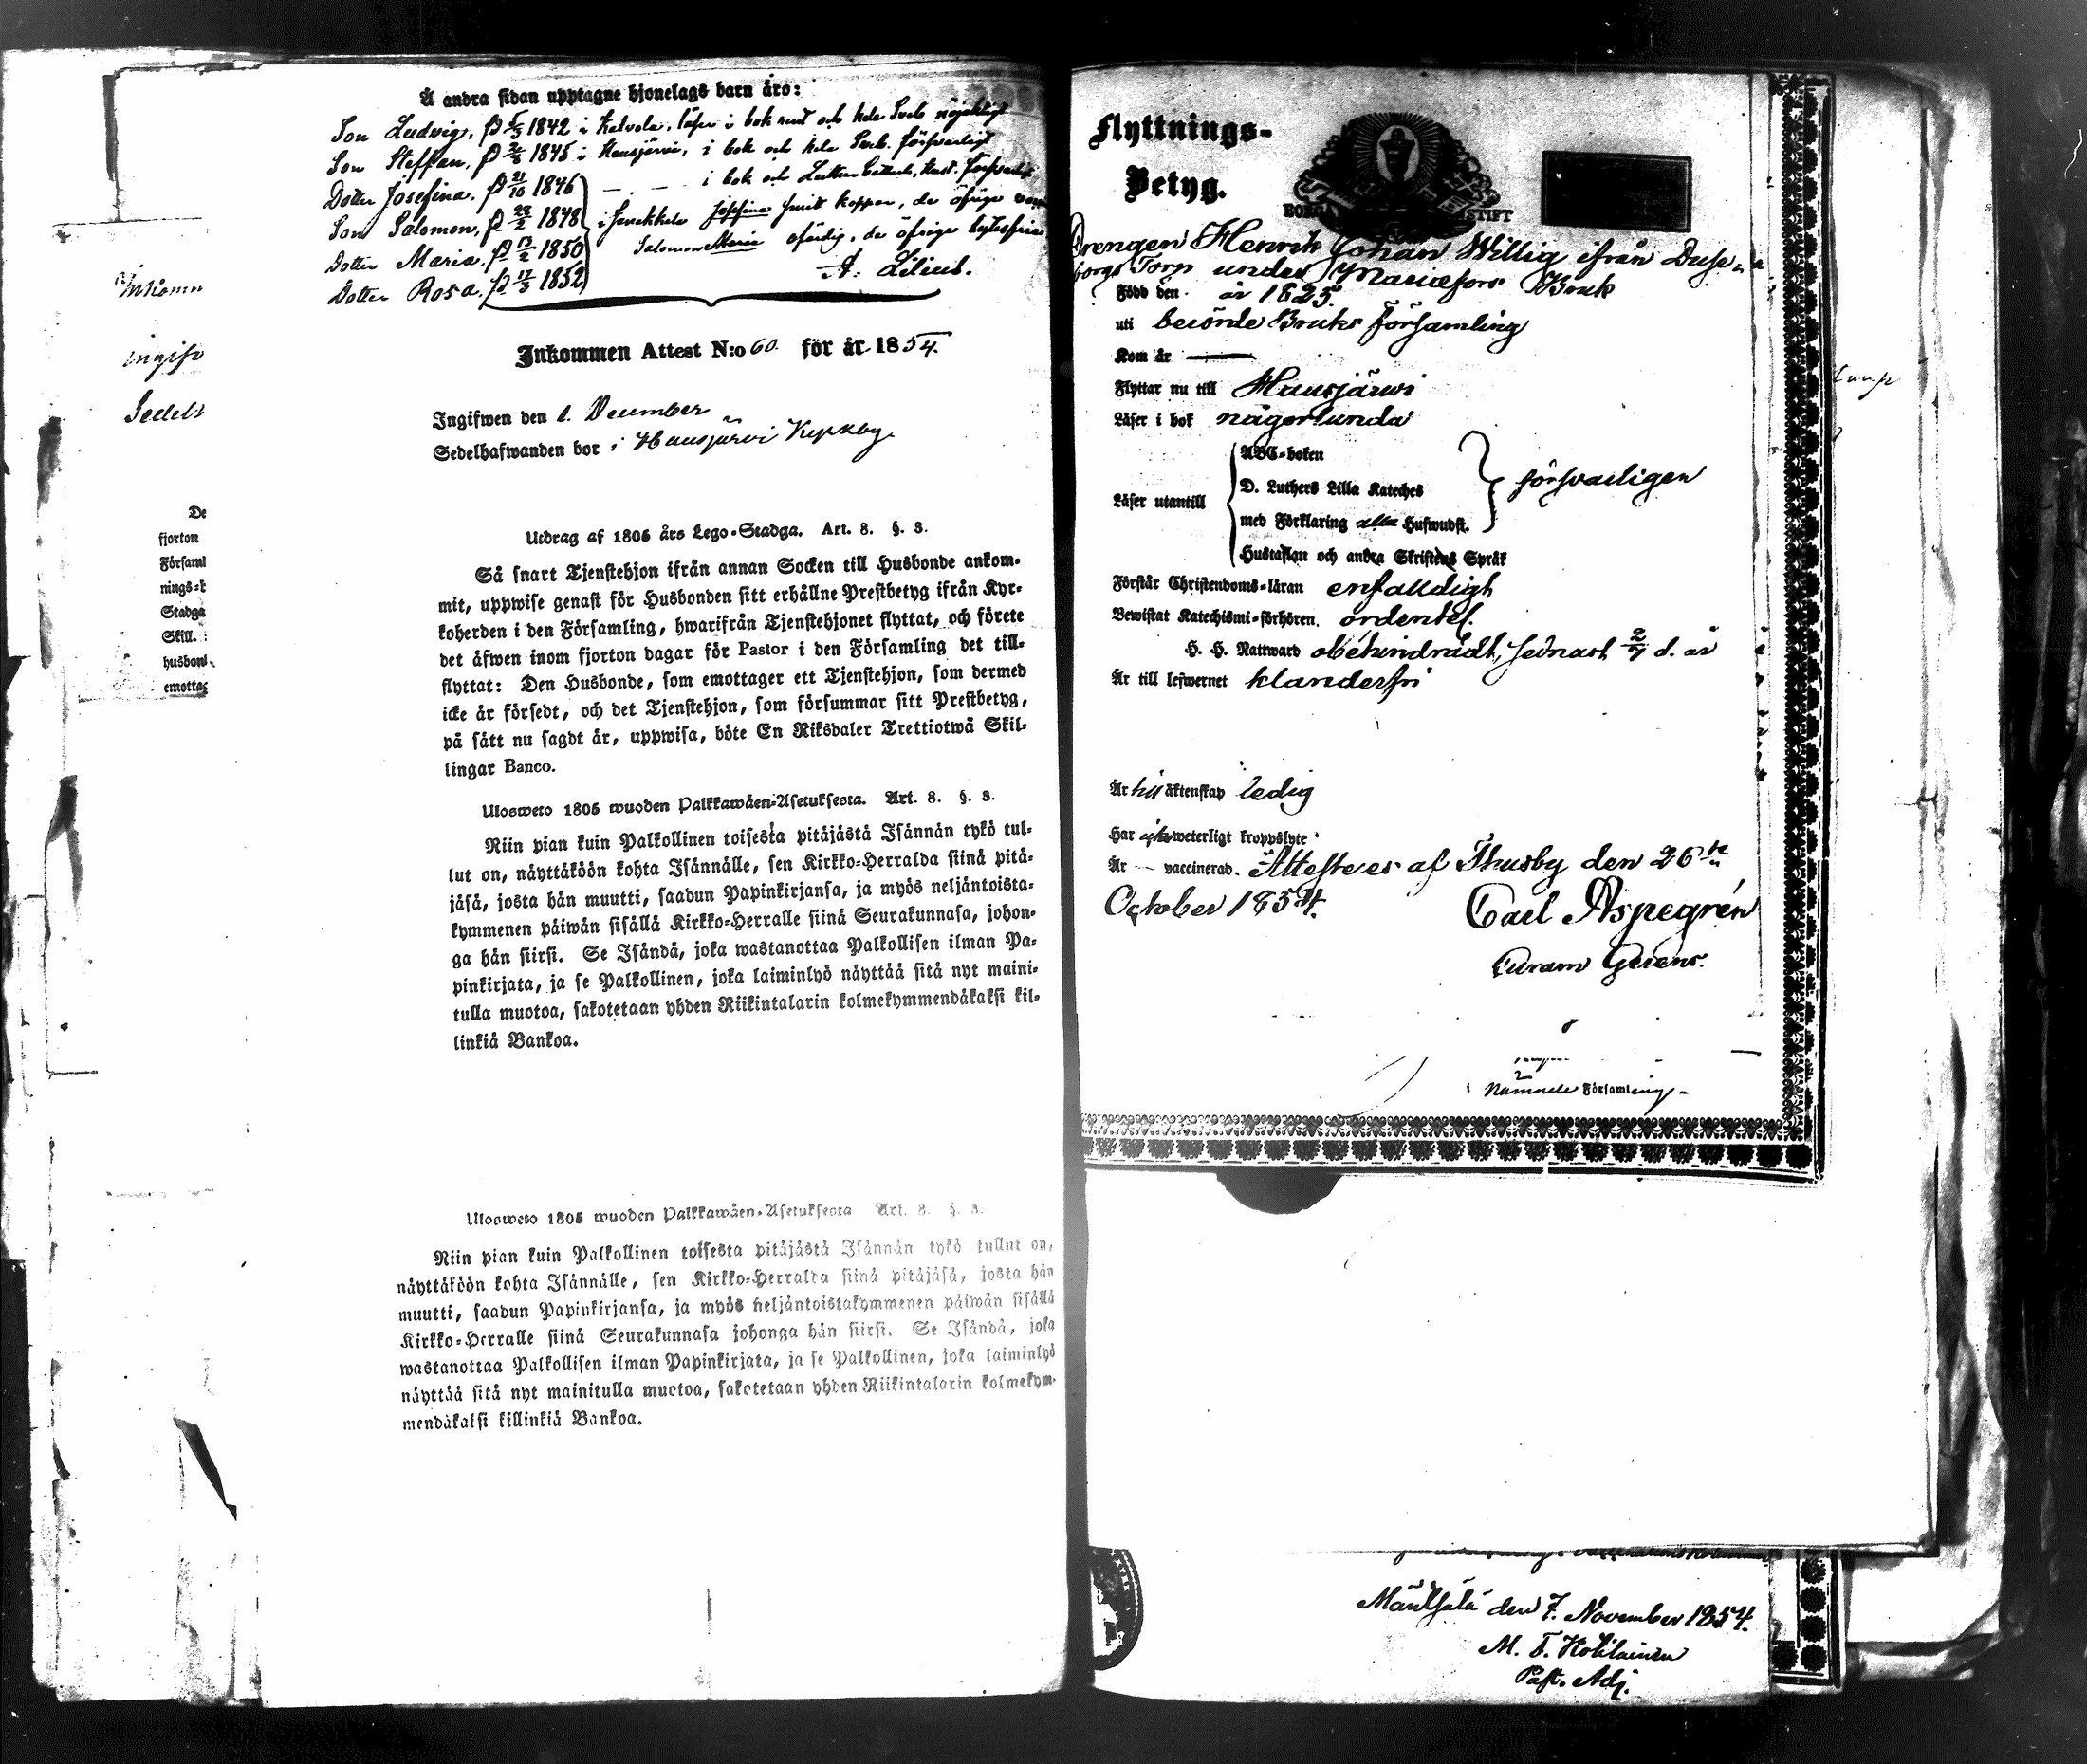 Å andra sidan upptagne hjonelags barn äro:
Son Ludvig, 1842 i Kalvola, läser i bok rent och hela nöjaktigt
Son Steffan, 1845 i Hausjärvi, i bok och hela försvarligt
Dotter Josefina, 21/10 1846 — — i bok och
Son Salomon, 1848 Josefina haft koppor, de öfriga
Dotter Maria, 13/2 1850 Salomon Maria ofärdig, de öfriga lytesfria
Dotter Rosa, 17/5 1852
A. Lilius.
Inkommen Attest N:o 60 för år 1854.
Ingifwen den 1. December
Sedelhafwanden bor i Hausjärvi Kyrkby
Inkomm
Ingifv
Sedelh
De
fjorton
Församl
nings-b
Stadga
Skill.
husbond
emottag
Utdrag af 1805 års Lego-Stadga. Art. 8. §. 3.
Så snart Tjenstehjon ifrån annan Socken till Husbonde ankom-
mit, uppwise genast för Husbonden sitt erhållne Prestbetyg ifrån Kyr-
koherden i den Församling, hwarifrån Tjenstehjonet flyttat, och förete
det äfwen inom fjorton dagar för Pastor i den Församling det till-
flyttat: Den Husbonde, som emottager ett Tjenstehjon, som dermed
icke är försedt, och det Tjenstehjon, som försummar sitt Prestbetyg,
på sätt nu sagdt är, uppwisa, böte En Riksdaler Trettiotwå Skil-
lingar Banco.
Ulosweto 1805 wuoden Palkkawäen-Asetuksesta. Art. 8. §. 3.
Niin pian kuin Palkollinen toisesta pitäjästä Isännän tykö tul-
lut on, näyttäköön kohta Isännälle, sen Kirkko-Herralda siinä pitä-
jäsä, josta hän muutti, saadun Papinkirjansa, ja myös neljäntoista-
kymmenen päiwän sisällä Kirkko-Herralle siinä Seurakunnasa, johon-
ga hän siirsi. Se Isändä, joka wastanottaa Palkollisen ilman Pa-
pinkirjata, ja se Palkollinen, joka laiminlyö näyttää sitä nyt maini-
tulla muotoa, sakotetaan yhden Riikintalarin kolmekymmendäkaksi kil-
linkiä Bankoa.
Ulosweto 1805 wuoden Palkkawäen-Asetuksesta Art. 8. §. 3.
Niin pian kuin Palkollinen toisesta pitäjästä Isännän tykö tullut on,
näyttäköön kohta Isännälle, sen Kirkko-Herralda siinä pitäjäsä, josta hän
muutti, saadun Papinkirjansa, ja myös neljäntoistakymmenen päiwän sisällä
Kirkko-Herralle siinä Seurakunnasa johonga hän siirsi. Se Isändä, joka
wastanottaa Palkollisen ilman Papinkirjata, ja se Palkollinen, joka laiminlyö
näyttää sitä nyt mainitulla muotoa, sakotetaan yhden Riikintalarin kolmekym-
mendäkaksi killinkiä Bankoa.
Flyttnings-
Betyg.
BORGÅ STIFT
Drengen Henrik Johan Willig ifrån
borgs Torp under Mariefors Bruk
Född den år 1825.
uti berörde Bruks Församling
Kom år —
Flyttar nu till Hausjärwi
Läser i bok någorlunda
Läser utantill
ABC-boken
D. Luthers Lilla Kateches
med Förklaring alla Hufwudst.
försvarligen
Hustaflan och andra Skriftens Språk
Förstår Christendoms-läran enfalldigt
Bewistat Katechismi-förhören ordentel.
H. H. Nattward obehindradt, sednast 2/7 d. år
Är till lefwernet klanderfri
Är till äktenskap ledig
Har icke weterligt kroppslyte
Är — vaccinerad. Attesteres af Thusby den 26te
October 1854.
Carl Aspegrén
i Nämnde Församling
Mäntsälä den 7. November 1854.
Past. Adj.